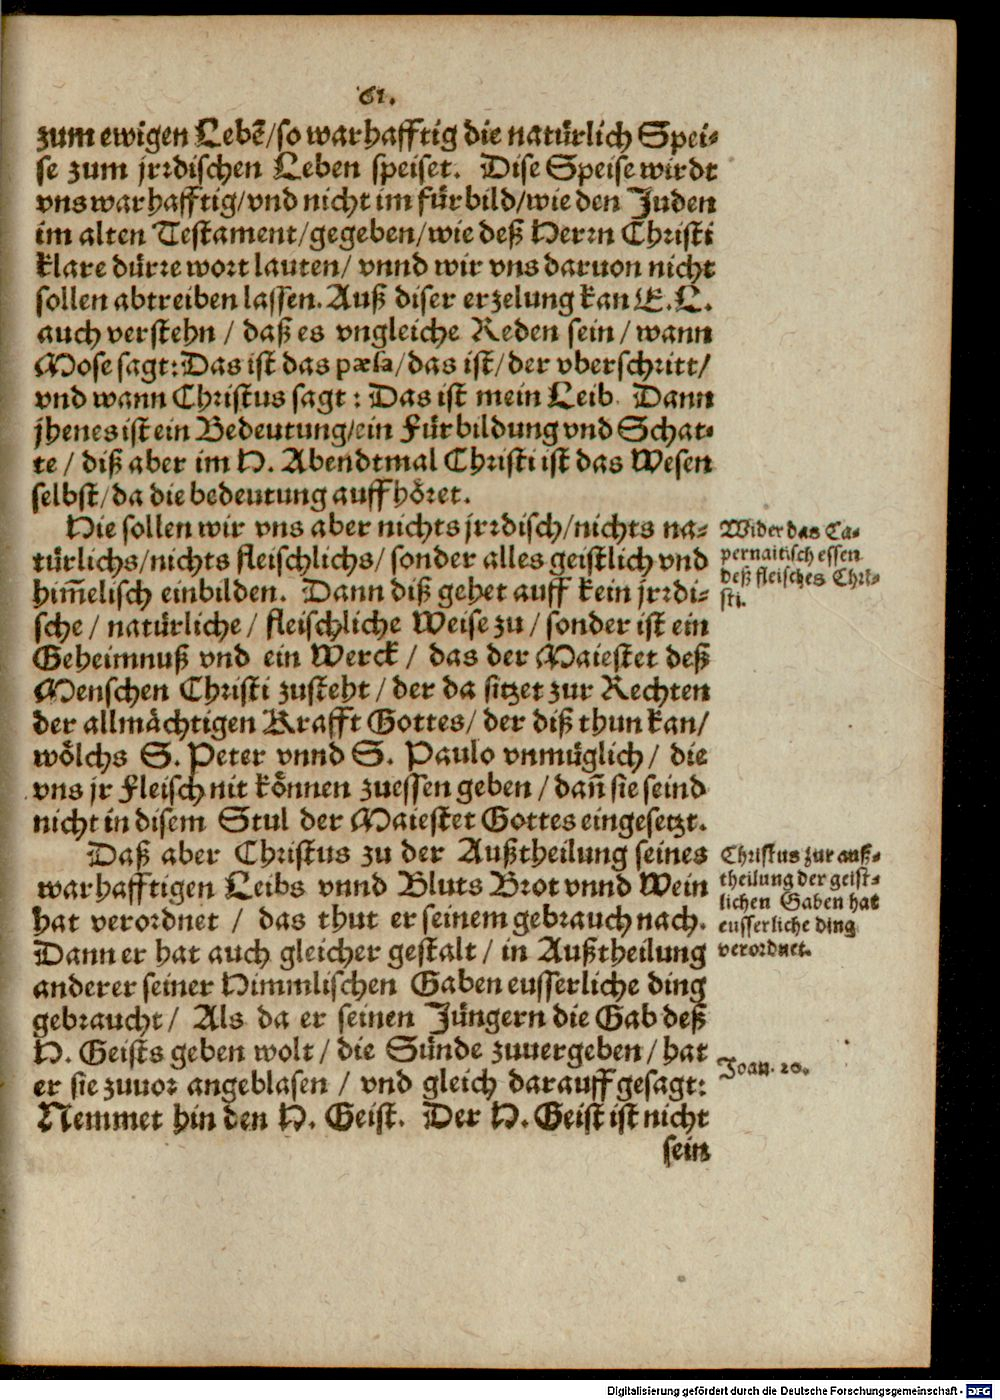 61.
zum ewigen Lebē/so warhafftig die natürlich Spei-
se zum jrrdischen Leben speiset. Dise Speise wirdt
vns warhafftig/vnd nicht im fürbild/wie den Juden
im alten Testament/gegeben/wie deß Herrn Christi
klare dürre wort lauten/ vnnd wir vns daruon nicht
sollen abtreiben lassen. Auß diser erzelung kan E. L.
auch verstehn / daß es vngleiche Reden sein / wann
Mose sagt: Das ist das pæsa/das ist/der vberschritt/
vnd wann Christus sagt : Das ist mein Leib. Dann
jhenes ist ein Bedeutung/ein Fürbildung vnd Schat-
te / diß aber im H. Abendtmal Christi ist das Wesen
selbst/da die bedeutung auffhöret.
Hie sollen wir vns aber nichts jrrdisch/nichts na-
türlichs/nichts fleischlichs/ sonder alles geistlich vnd
him̃elisch einbilden. Dann diß gehet auff kein jrrdi-
sche / natürliche / fleischliche Weise zu / sonder ist ein
Geheimnuß vnd ein Werck / das der Maiestet deß
Menschen Christi zusteht / der da sitzet zur Rechten
der allmächtigen Krafft Gottes/ der diß thun kan/
wölchs S. Peter vnnd S. Paulo vnmüglich / die
vns jr Fleisch nit können zuessen geben / dañ sie seind
nicht in disem Stul der Maiestet Gottes eingesetzt.
Daß aber Christus zu der Außtheilung seines
warhafftigen Leibs vnnd Bluts Brot vnnd Wein
hat verordnet / das thut er seinem gebrauch nach.
Dann er hat auch gleicher gestalt / in Außtheilung
anderer seiner Himmlischen Gaben eusserliche ding
gebraucht/ Als da er seinen Jüngern die Gab deß
H. Geists geben wolt / die Sünde zuuergeben / hat
er sie zuuor angeblasen / vnd gleich darauff gesagt:
Nemmet hin den H. Geist. Der H. Geist ist nicht
sein
Wider das Ca-
pernaitisch essen
deß fleisches Chri-
sti.
Christus zur auß-
theilung der geist-
lichen Gaben hat
eusserliche ding
verordnet.
Joan. 20.
Digitalisierung gefördert durch die Deutsche Forschungsgemeinschaft - DFG